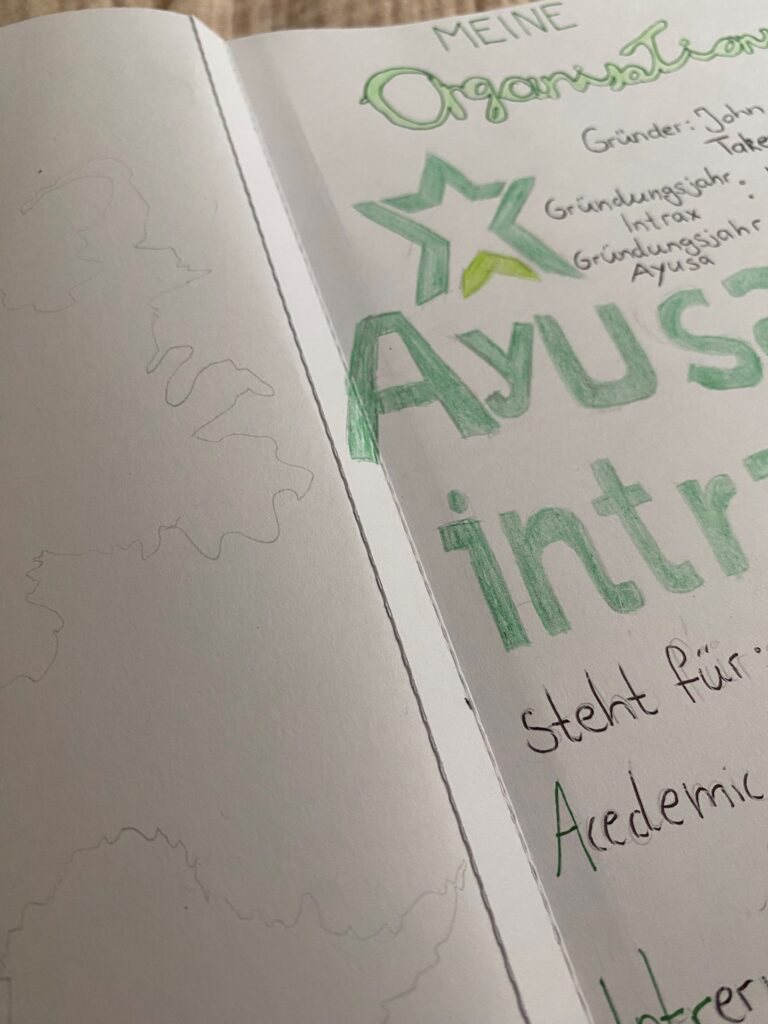 MEINE
Organisation
Gründer: John
Take
Gründungsjahr
Intrax :
Gründungsjahr
Ayusa
Ayusa
intra
steht für:
Acedemic
Intrer